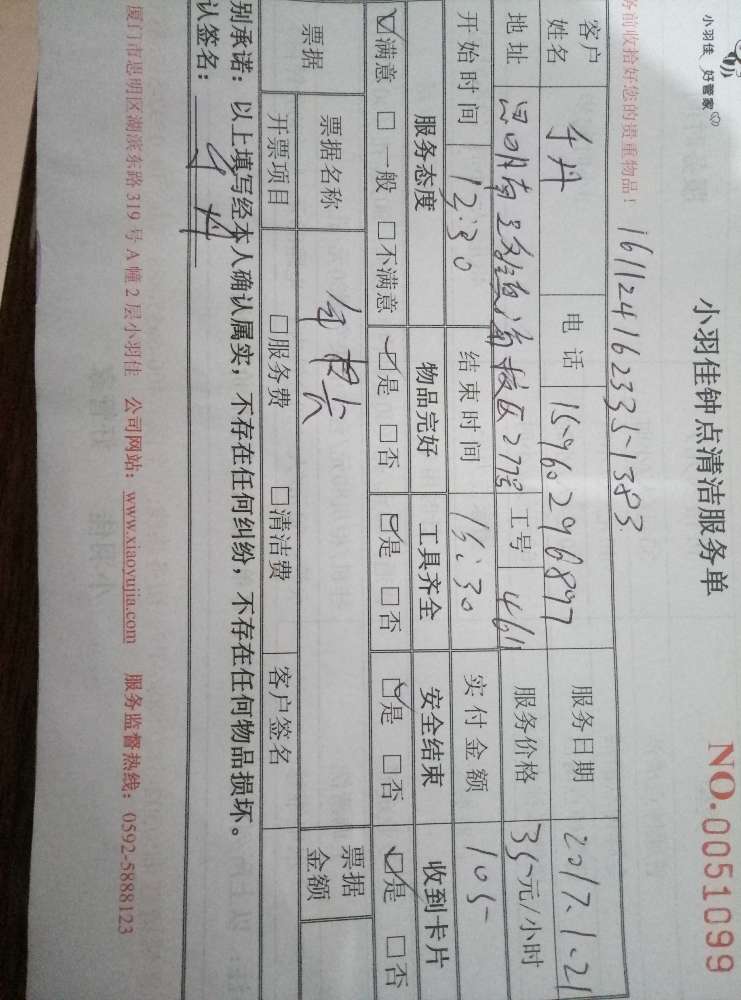 小羽佳 好管家
小羽佳钟点清洁服务单
NO.0051099
务前收拾好您的贵重物品！
客户姓名
电话 15960296897
服务日期 2017.1.21
地址
工号 461
服务价格 35元/小时
开始时间 12:30 结束时间 15:30 实付金额 105
服务态度 物品完好 工具齐全 安全结束 收到卡片
☑满意 □一般 □不满意 ☑是 □否 ☑是 □否 ☑是 □否 ☑是 □否
票据 票据名称 票据金额
开票项目 □服务费 □清洁费 客户签名
别承诺：以上填写经本人确认属实，不存在任何纠纷，不存在任何物品损坏。
认签名：
厦门市思明区湖滨东路319号A幢2层小羽佳 公司网站：www.xiaoyujia.com 服务监督热线：0592-5888123